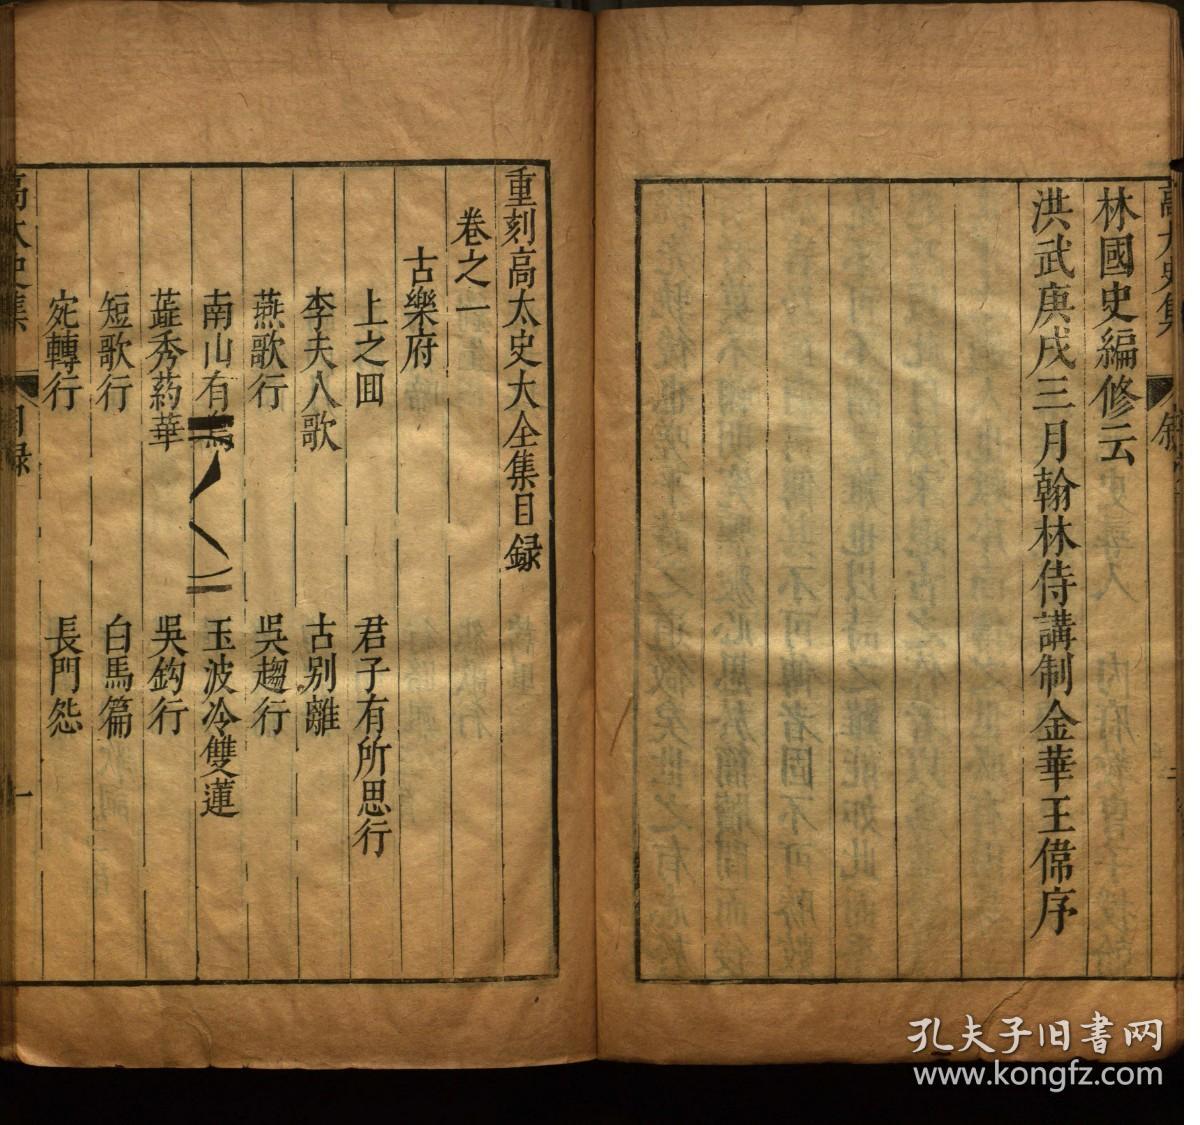 林國史編修云
洪武庚戌三月翰林侍講制金華王偁序
重刻高太史大全集目録
卷之一
古樂府
上之回
君子有所思行
李夫人歌
古别離
燕歌行
吳趨行
南山有
玉波冷雙蓮
秀葯華
吳鈎行
短歌行
白馬篇
宛轉行
長門怨
高太史集
目録
一
孔夫子旧書网
www.kongfz.com